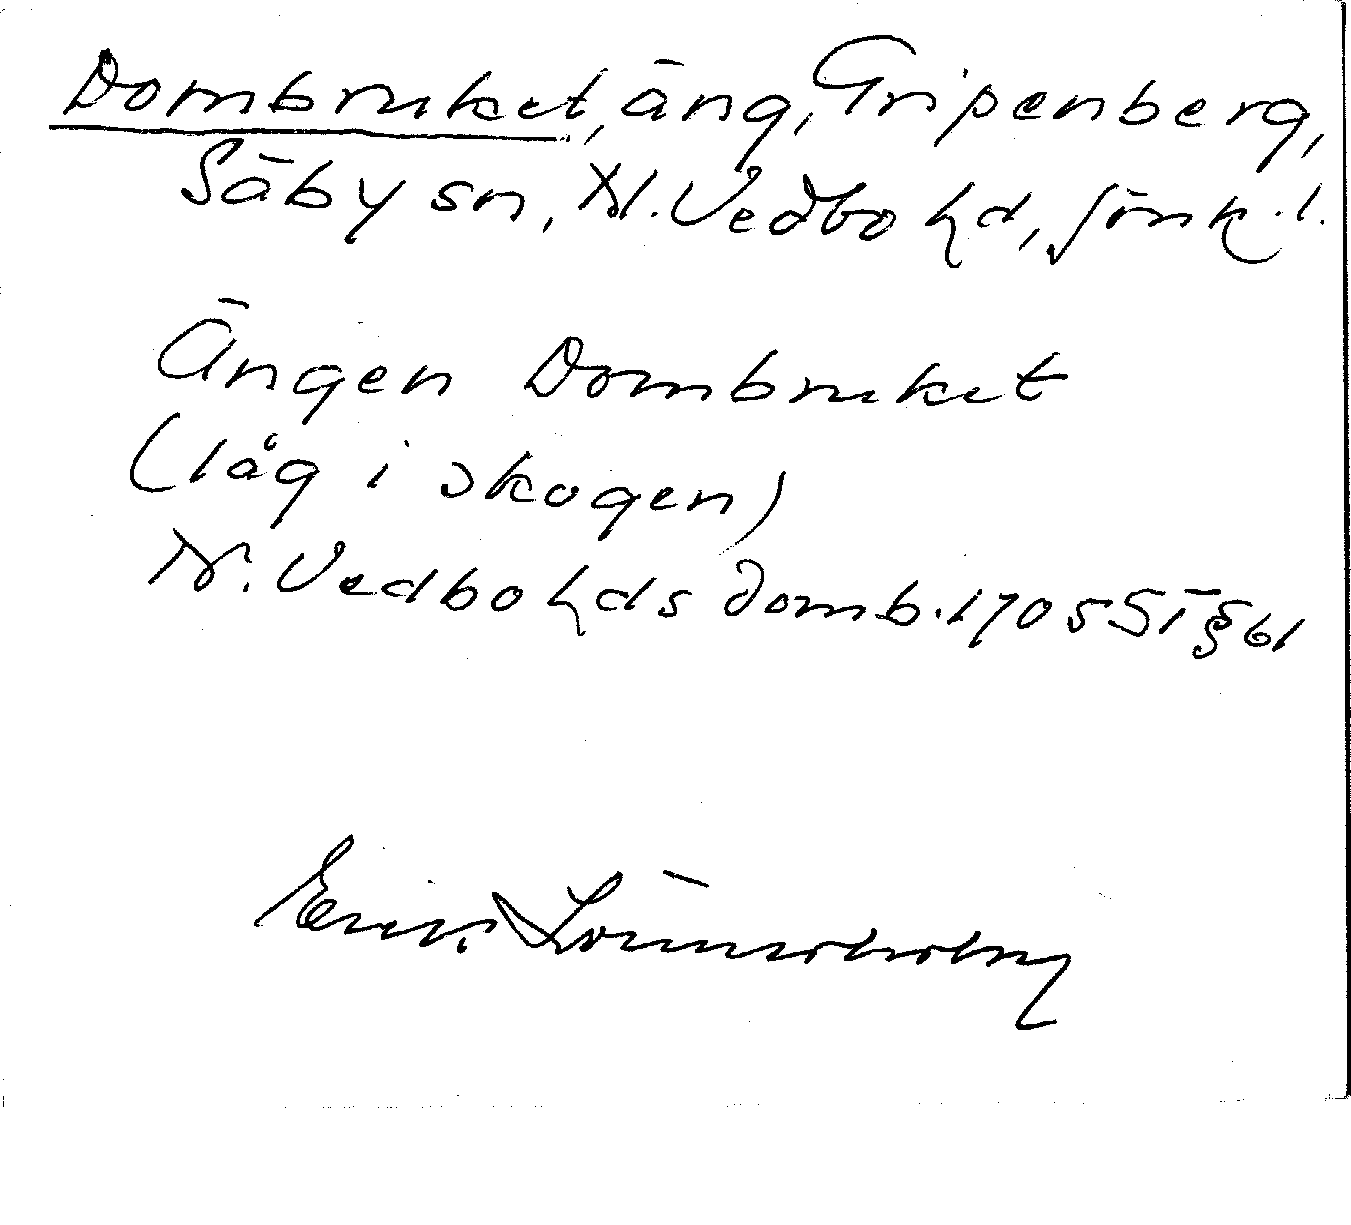 Dombruket, äng, Gripenberg,
Säby sn, N. Vedbo hd, Jönk. l.
Ängen Dombruket
(låg i skogen)
N. Vedbo hds domb. 1705 ST § 61
Eric